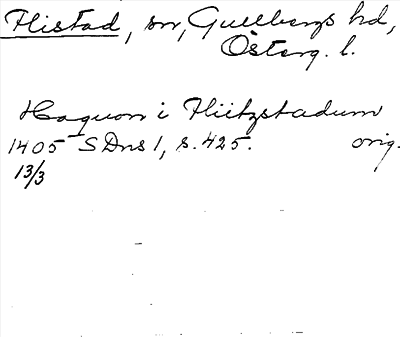 Flistad, sn, Gullbergs hd,
Österg. l.
Haquon i Fliitzstadum
1405 SDns 1, s. 425. orig.
13/3